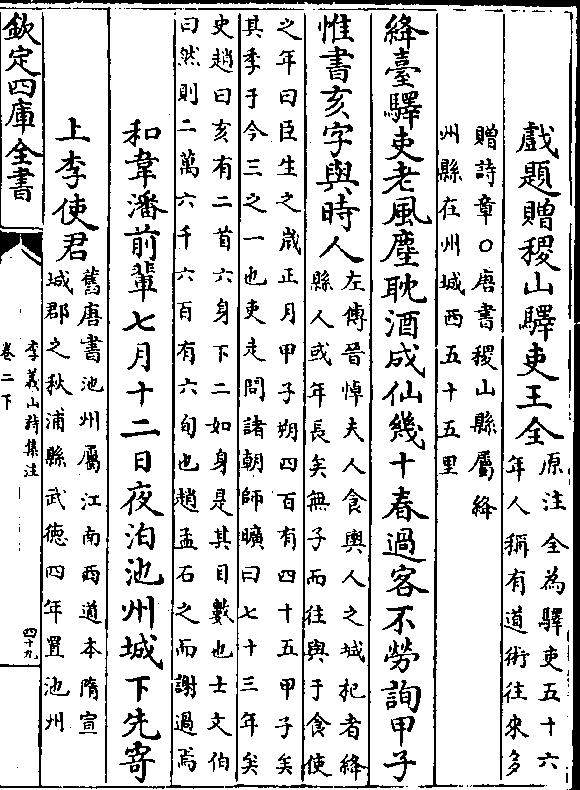 戲題贈稷山驛吏王全
原注全為驛吏五十六
年人稱有道術往來多
贈詩章○唐書稷山縣屬絳
州縣在州城西五十五里
絳臺驛吏老風塵耽酒成仙幾十春過客不勞詢甲子
惟書亥字與時人
左傳晉悼夫人食輿人之城杞者絳
縣人或年長矣無子而往與于食使
之年曰臣生之歳正月甲子朔四百有四十五甲子矣
其季于今三之一也吏走問諸朝師曠曰七十三年矣
史趙曰亥有二首六身下二如身是其目數也士文伯
曰然則二萬六千六百有六旬也趙孟石之而謝過焉
和韋潘前輩七月十二日夜泊池州城下先寄
上李使君
舊唐書池州屬江南西道本隋宣
城郡之秋浦縣武德四年置池州
欽定四庫全書
李義山詩集注
卷二下
四十九